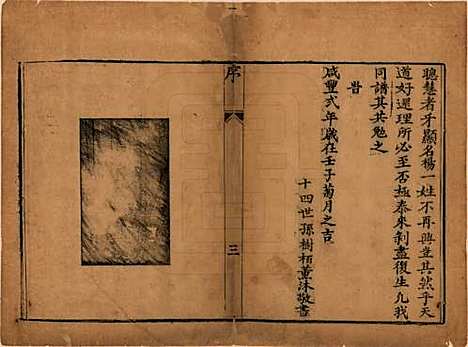 聰慧者才顯名楊一姓不再興豈其然乎天
道好還理所必至否極泰來剝盡復生凡我
同譜其共勉之
旹
咸豐弍年歲在壬子菊月之吉
十四世孫樹栢薰沐敬書
序
三